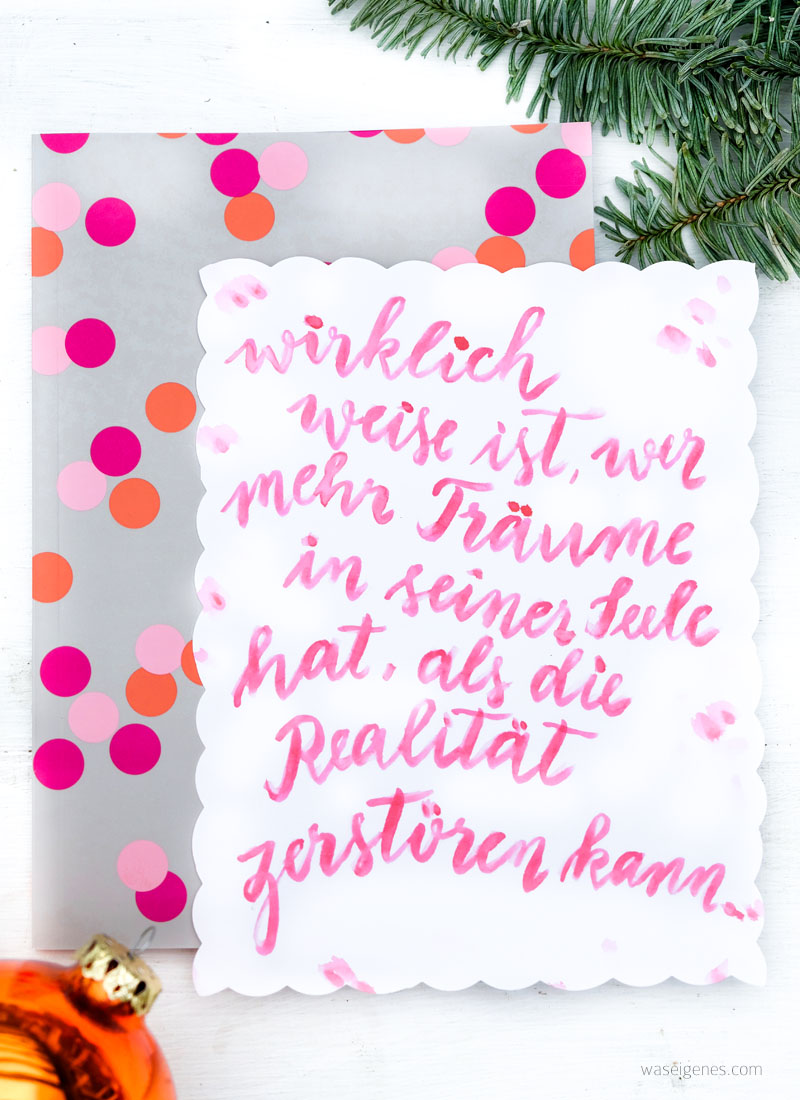 wirklich
weise ist, wer
mehr Träume
in seiner Seele
hat, als die
Realität
zerstören kann..
waseigenes.com